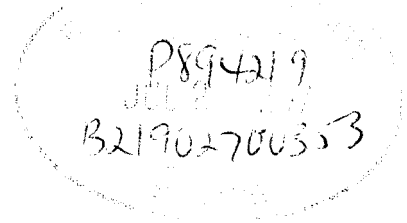 P894219
B21902700353